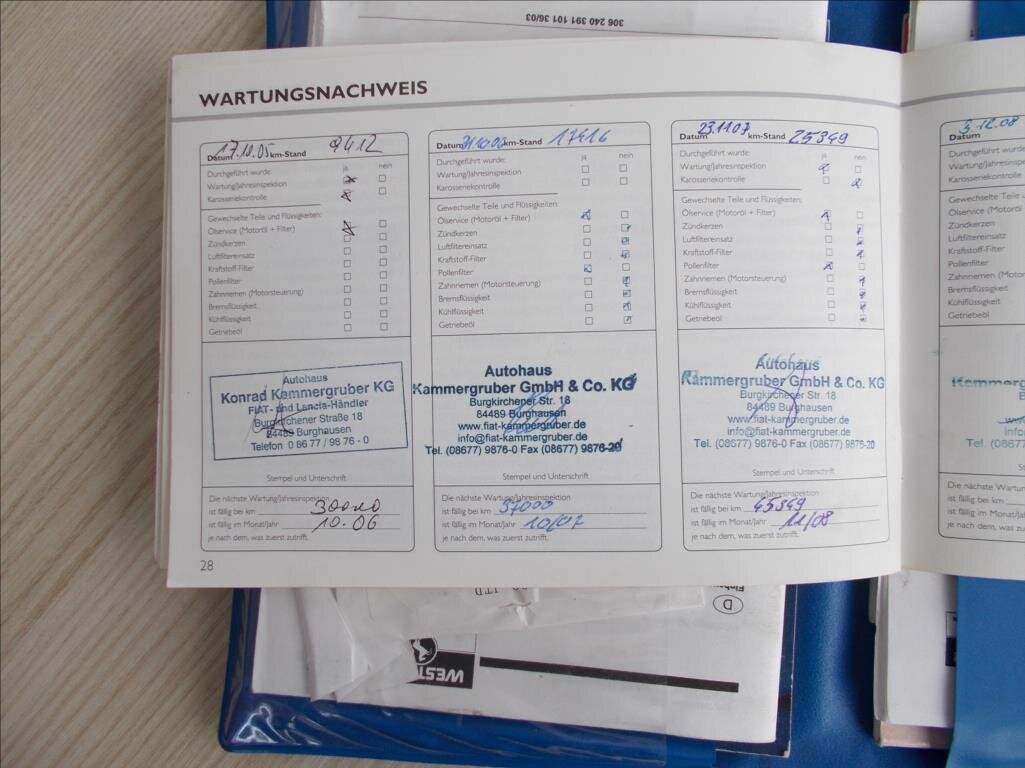 306 240 391 101 36/03
WARTUNGSNACHWEIS
Datum 17.10.05 km-Stand 9412
Durchgeführt wurde: ja nein
Wartung/Jahresinspektion
Karosseriekontrolle
Gewechselte Teile und Flüssigkeiten:
Ölservice (Motoröl + Filter)
Zündkerzen
Luftfiltereinsatz
Kraftstoff-Filter
Pollenfilter
Zahnriemen (Motorsteuerung)
Bremsflüssigkeit
Kühlflüssigkeit
Getriebeöl
Autohaus
Konrad Kammergruber KG
FIAT- und Lancia-Händler
Burgkirchener Straße 18
84489 Burghausen
Telefon 0 86 77 / 98 76 - 0
Stempel und Unterschrift
Die nächste Wartung/Jahresinspektion
ist fällig bei km 30000
ist fällig im Monat/Jahr 10.06
je nach dem, was zuerst zutrifft.
28
Datum km-Stand 17416
Durchgeführt wurde: ja nein
Wartung/Jahresinspektion
Karosseriekontrolle
Gewechselte Teile und Flüssigkeiten:
Ölservice (Motoröl + Filter)
Zündkerzen
Luftfiltereinsatz
Kraftstoff-Filter
Pollenfilter
Zahnriemen (Motorsteuerung)
Bremsflüssigkeit
Kühlflüssigkeit
Getriebeöl
Autohaus
Kammergruber GmbH & Co. KG
Burgkirchener Str. 18
84489 Burghausen
www.fiat-kammergruber.de
info@fiat-kammergruber.de
Tel. (08677) 9876-0 Fax (08677) 9876-20
Stempel und Unterschrift
Die nächste Wartung/Jahresinspektion
ist fällig bei km 37000
ist fällig im Monat/Jahr 10/07
je nach dem, was zuerst zutrifft.
Datum 23.11.07 km-Stand 25349
Durchgeführt wurde: ja nein
Wartung/Jahresinspektion
Karosseriekontrolle
Gewechselte Teile und Flüssigkeiten:
Ölservice (Motoröl + Filter)
Zündkerzen
Luftfiltereinsatz
Kraftstoff-Filter
Pollenfilter
Zahnriemen (Motorsteuerung)
Bremsflüssigkeit
Kühlflüssigkeit
Getriebeöl
Autohaus
Kammergruber GmbH & Co. KG
Burgkirchener Str. 18
84489 Burghausen
www.fiat-kammergruber.de
info@fiat-kammergruber.de
Tel. (08677) 9876-0 Fax (08677) 9876-20
Stempel und Unterschrift
Die nächste Wartung/Jahresinspektion
ist fällig bei km 45349
ist fällig im Monat/Jahr 11/08
je nach dem, was zuerst zutrifft.
Datum 3.12.08
Durchgeführt wurde:
Wartung/Jahresinspektion
Karosseriekontrolle
Gewechselte Teile und
Ölservice (Motoröl +
Zündkerzen
Luftfiltereinsatz
Kraftstoff-Filter
Pollenfilter
Zahnriemen (Motor
Bremsflüssigkeit
Kühlflüssigkeit
Getriebeöl
Kammergr
Tel. (08677)
Stem
Die nächste Wartung
ist fällig bei km
ist fällig im Monat/Jahr
je nach dem, was zu
D
WEST